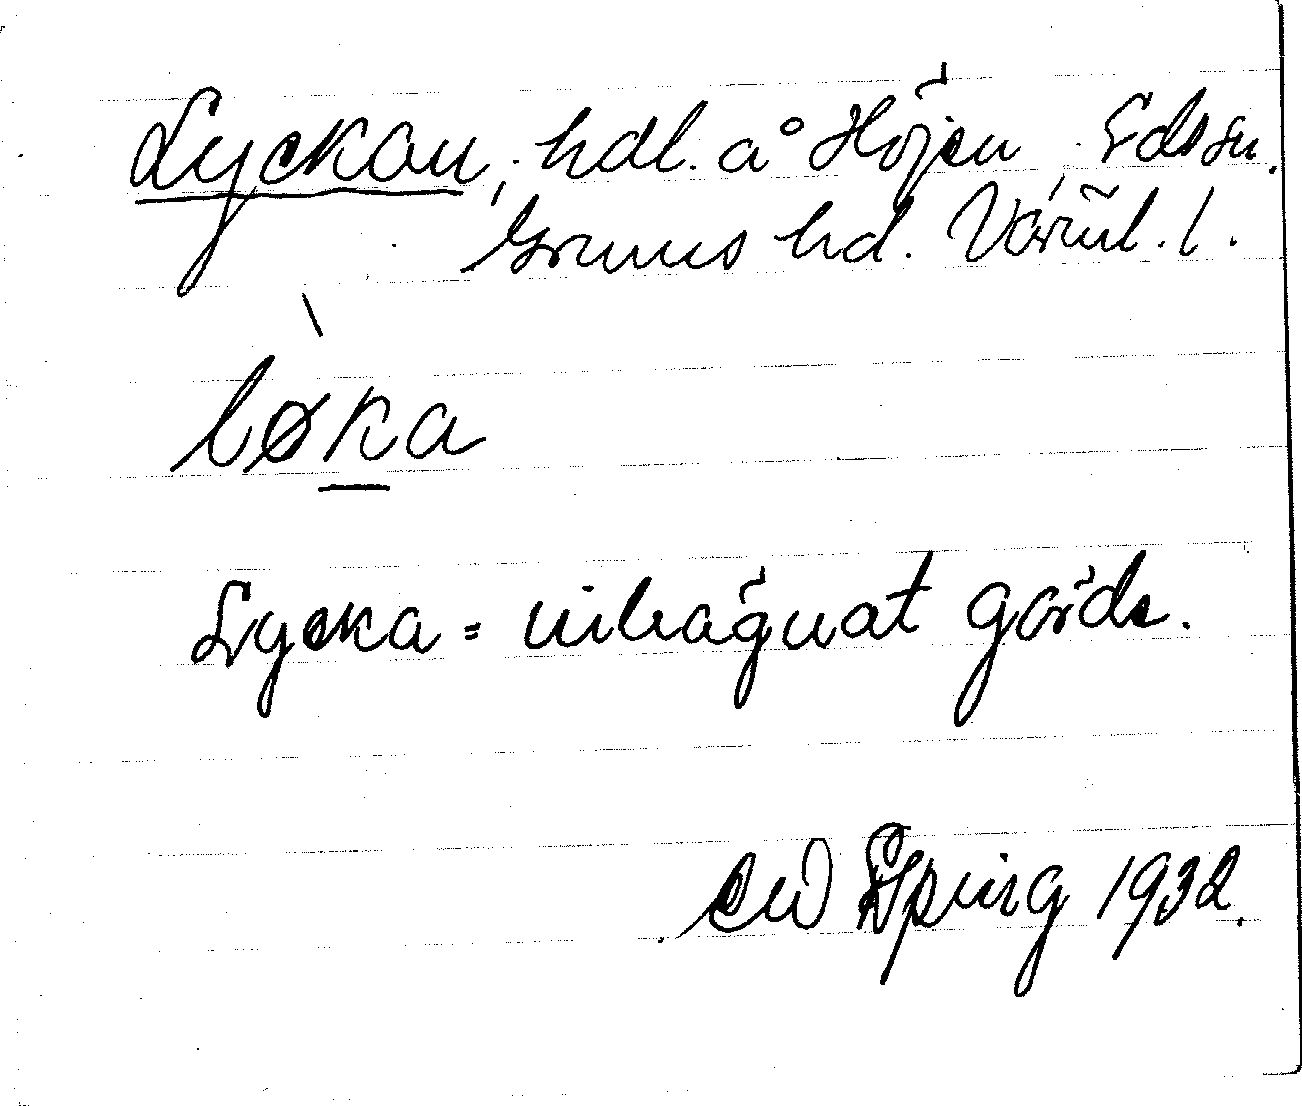 Lyckan, hdl. å Höjen, Eds sn.
Grums hd. Värml. l.
lø̀ka
Lycka = inhägnat gärde.
Spring 1932.